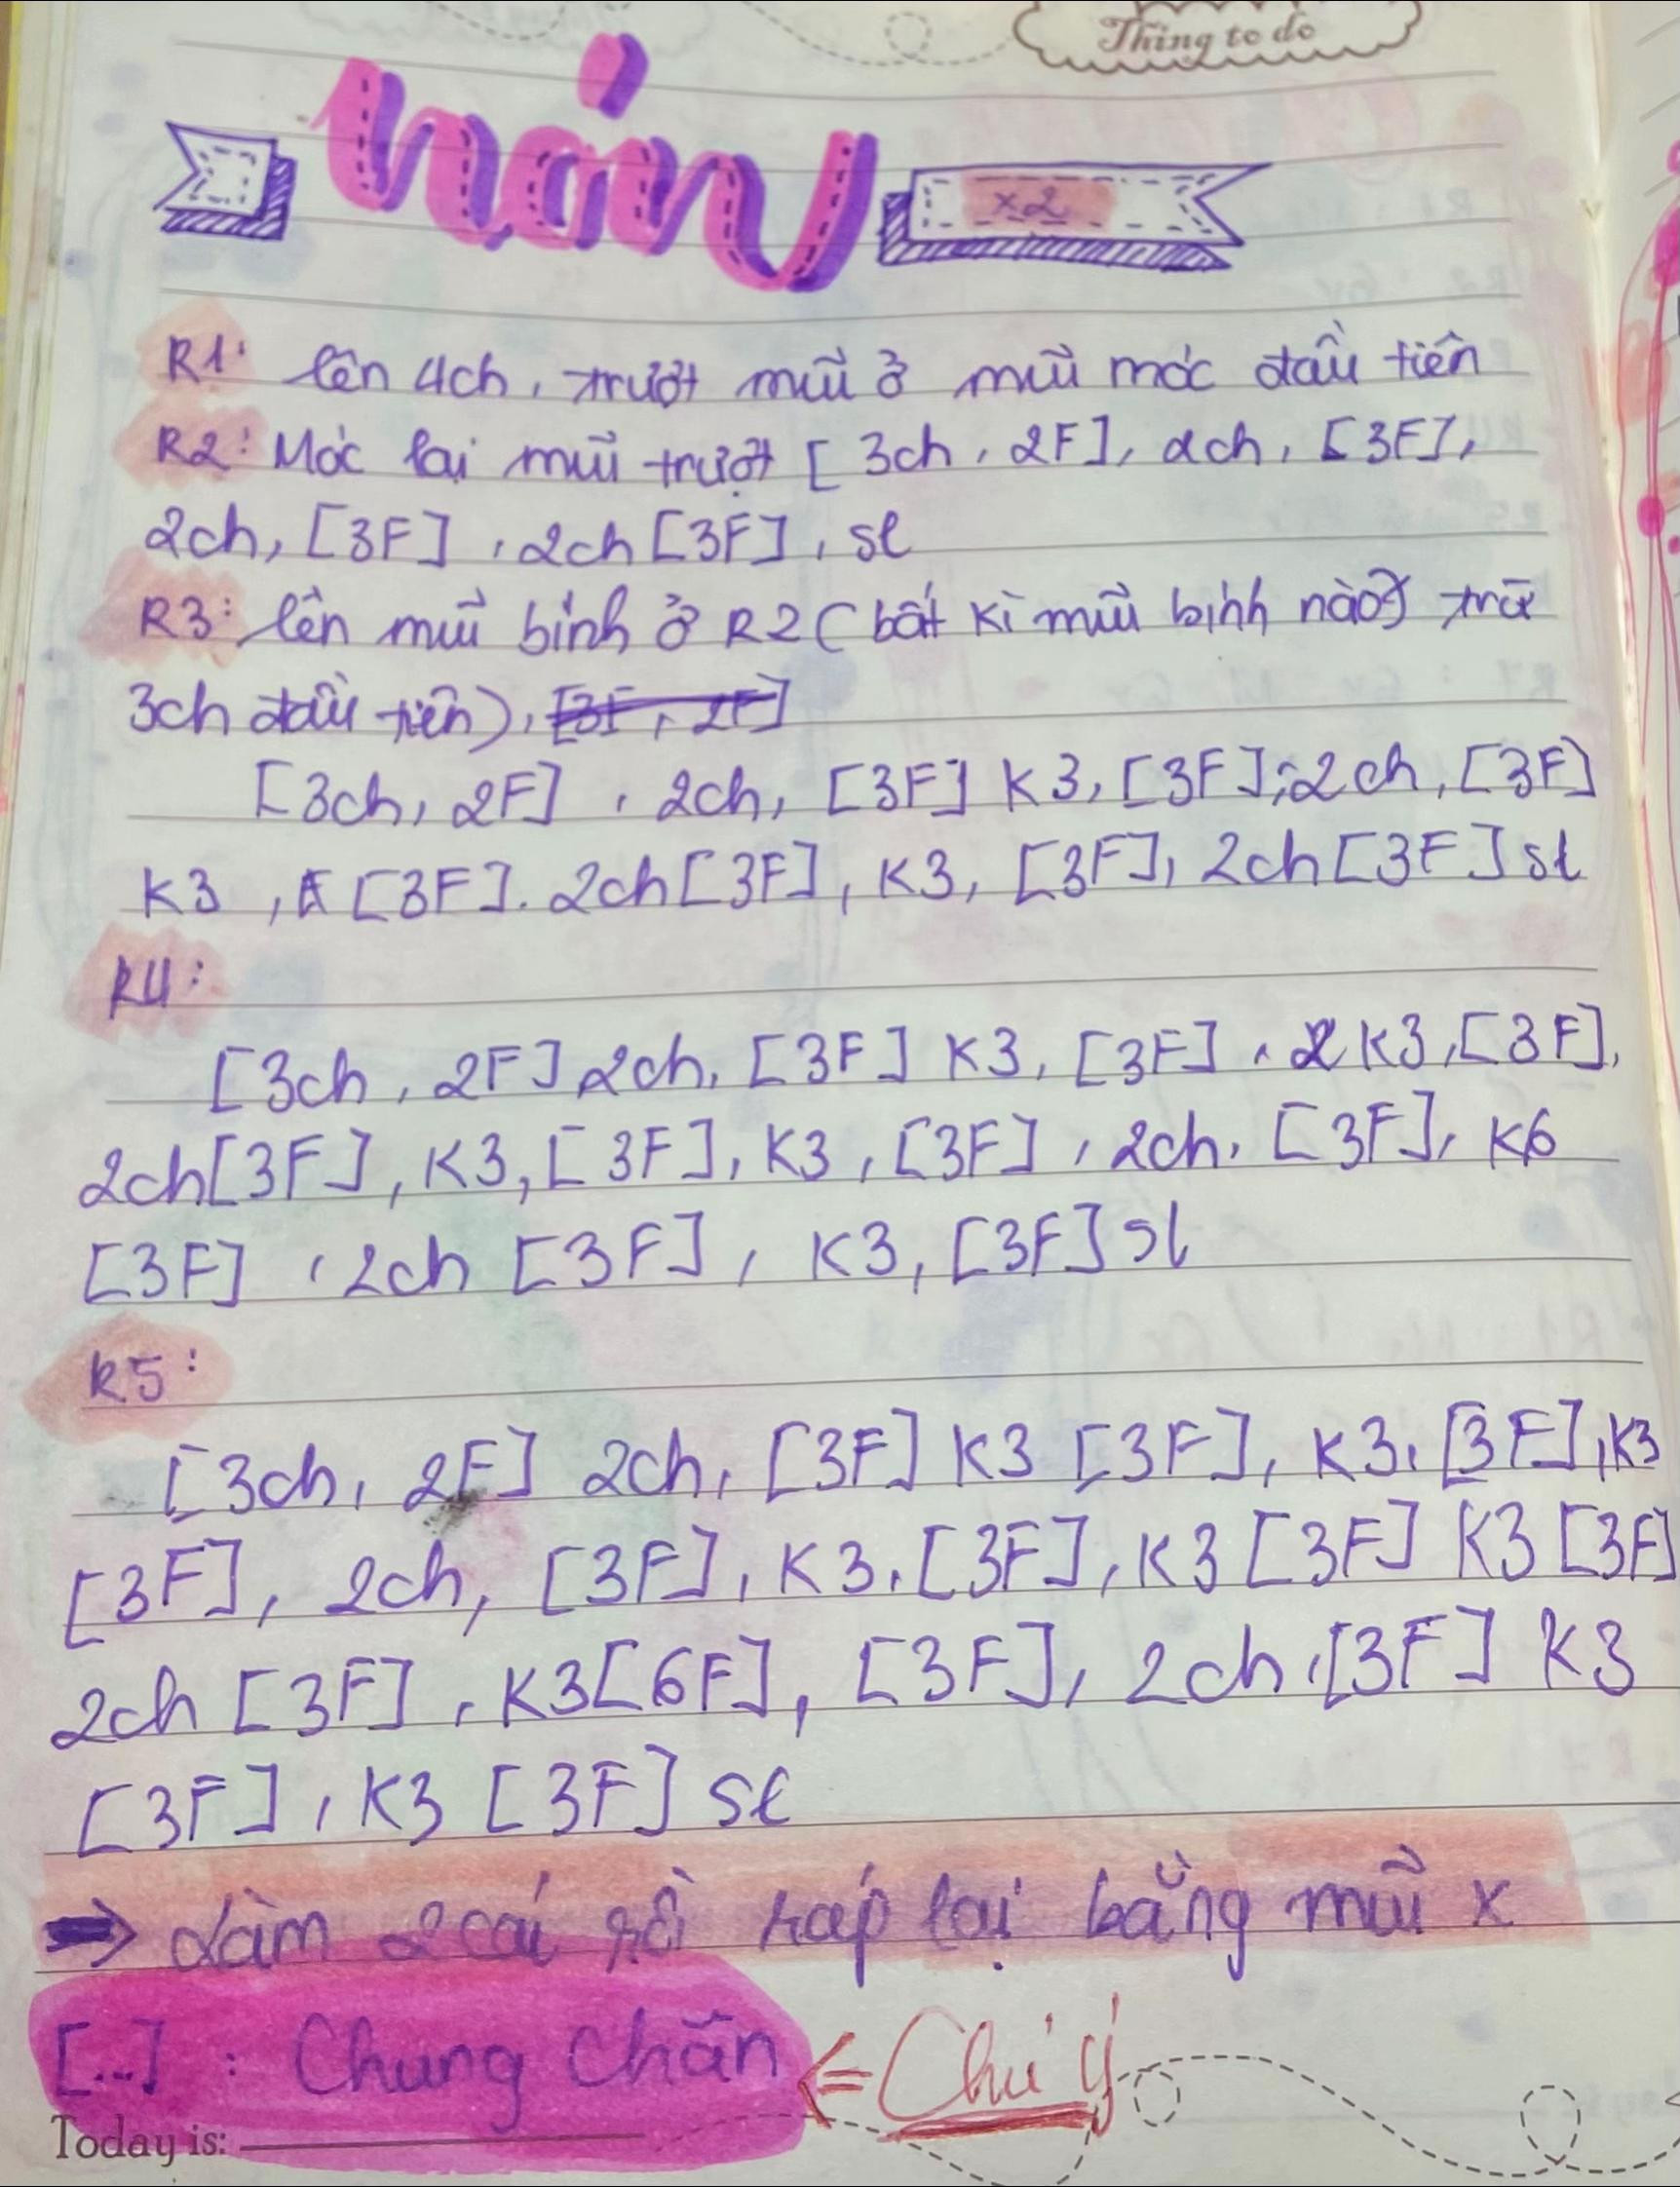 Thing to do
x2
R1: lên 4ch, trượt mũi ở mũi móc đầu tiên
R2: Móc lại mũi trượt [3ch, 2F], 2ch, [3F],
2ch, [3F], 2ch [3F], sl
R3: lên mũi bính ở R2 (bất kì mũi bính nào) trừ
3ch đầu tiên), [3F, 2F]
[3ch, 2F], 2ch, [3F] K3, [3F], 2ch, [3F]
K3, [3F]. 2ch [3F], K3, [3F], 2ch [3F] sl
R4:
[3ch, 2F] 2ch, [3F] K3, [3F], K3, [3F],
2ch [3F], K3, [3F], K3, [3F], 2ch, [3F], K6
[3F], 2ch [3F], K3, [3F] sl
R5:
[3ch, 2F] 2ch, [3F] K3 [3F], K3, [3F], K3
[3F], 2ch, [3F], K3, [3F], K3 [3F] K3 [3F]
2ch [3F], K3 [6F], [3F], 2ch, [3F] K3
[3F], K3 [3F] sl
⇒ Làm 2 cái rồi ráp lại bằng mũi x
[...] : Chung Chân ⇐ Chú ý
Today is: